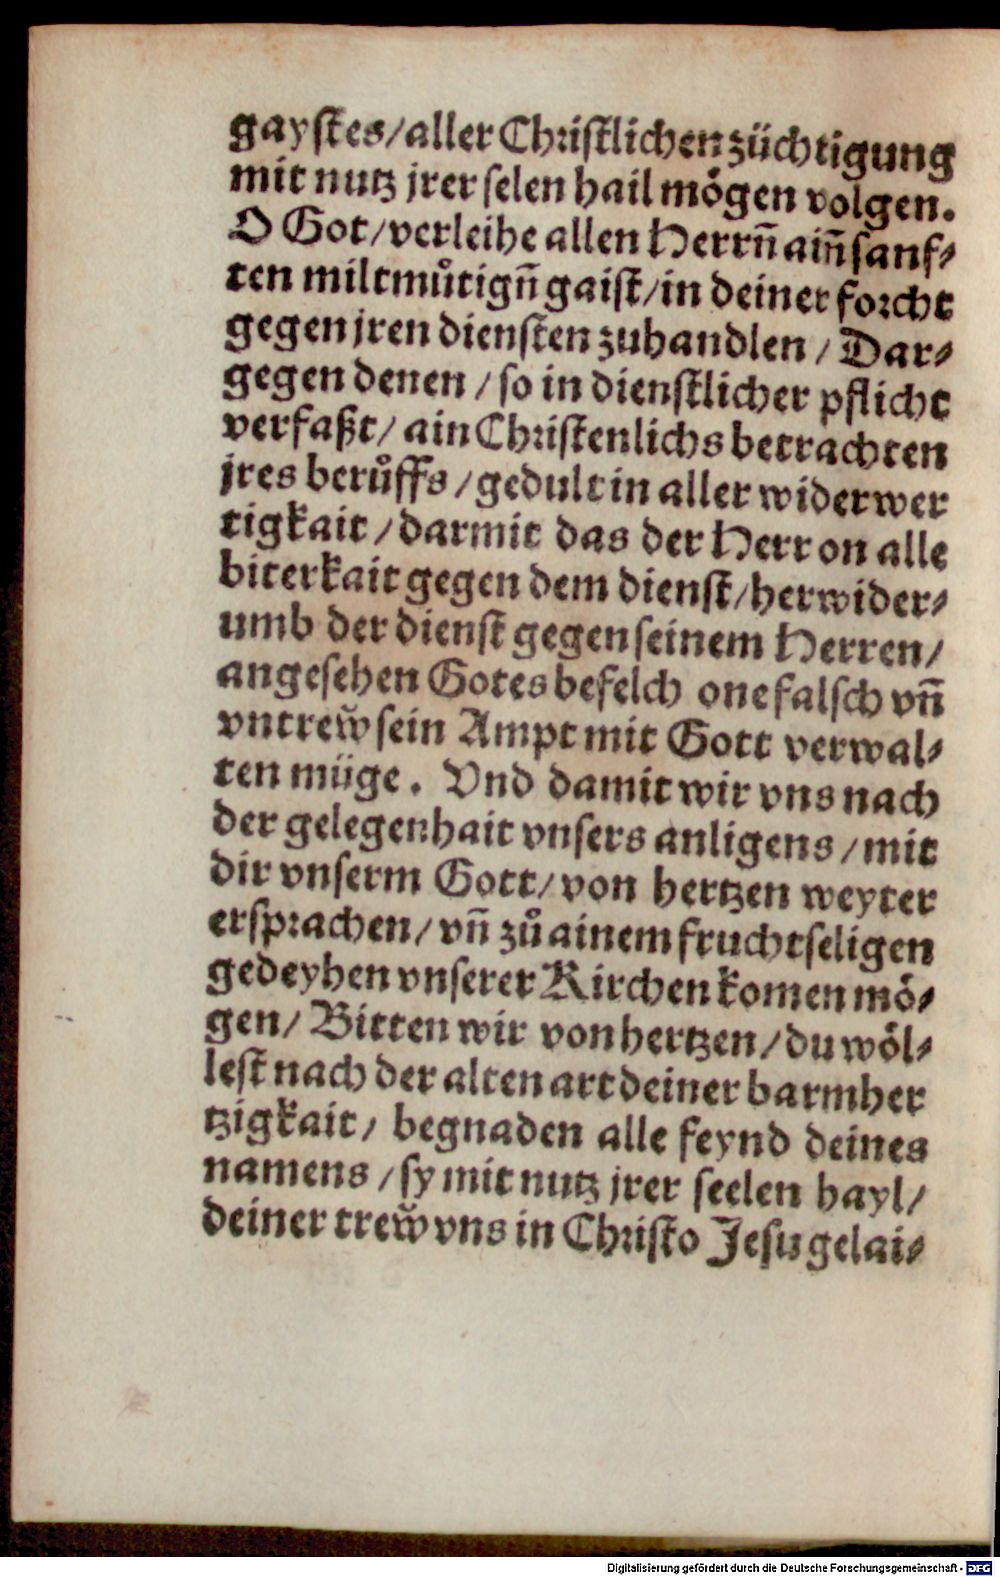 gaystes/aller Christlichen züchtigung
mit nutz jrer selen hail mögen volgen.
O Got/verleihe allen Herrñ aiñ sanf⸗
ten miltmůtigñ gaist/in deiner forcht
gegen jren diensten zuhandlen/Dar⸗
gegen denen/so in dienstlicher pflicht
verfaßt/ain Christenlichs betrachten
jres berůffs/gedult in aller widerwer
tigkait/darmit das der Herr on alle
biterkait gegen dem dienst/herwider⸗
umb der dienst gegen seinem Herren/
angesehen Gotes befelch one falsch vñ
vntrew̃ sein Ampt mit Gott verwal⸗
ten müge. Vnd damit wir vns nach
der gelegenhait vnsers anligens/mit
dir vnserm Gott/von hertzen weyter
ersprachen/vñ zů ainem fruchtseligen
gedeyhen vnserer Kirchen komen mö⸗
gen/Bitten wir von hertzen/du wöl⸗
lest nach der alten art deiner barmher
tzigkait/begnaden alle feynd deines
namens/sy mit nutz jrer seelen hayl/
deiner trew̃ vns in Christo Jesu gelai⸗
Digitalisierung gefördert durch die Deutsche Forschungsgemeinschaft - DFG